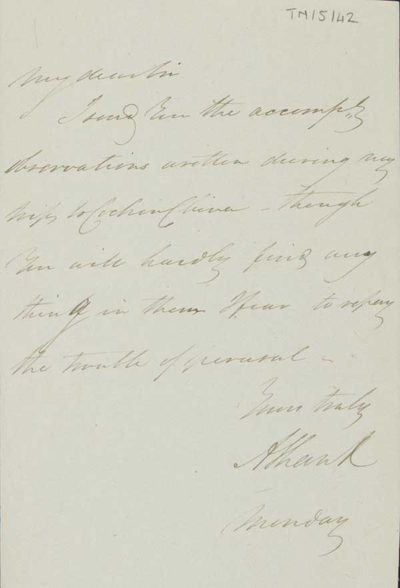 TN15/42
My dear Sir
I send you the accompg
observations written during my
trip to Cochin China - though
you will hardly find any
thing in them I fear to repay
the trouble of perusal -
Yours truly
Monday